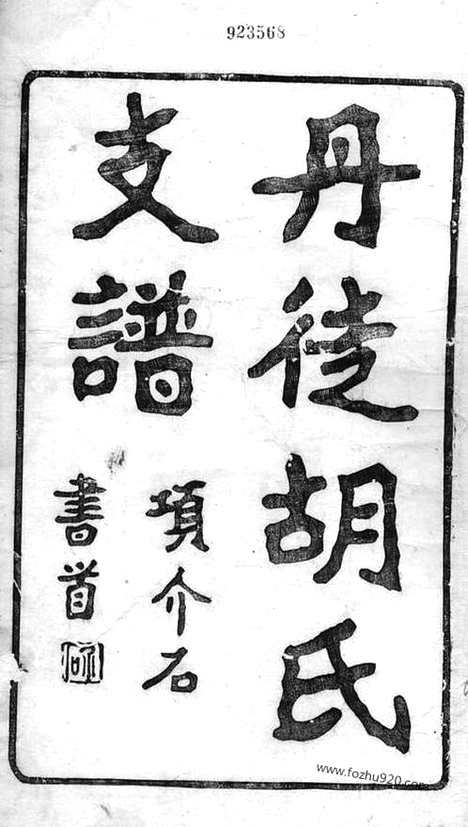 923568
丹徒胡氏
支譜
項介石
書首
www.fozhu920.com